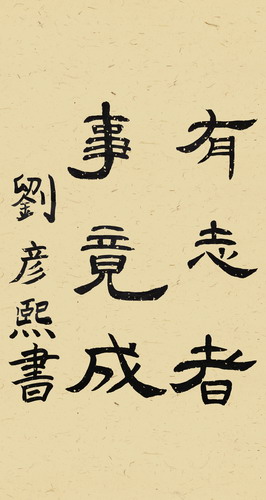 有志者
事竟成
劉彦熙書